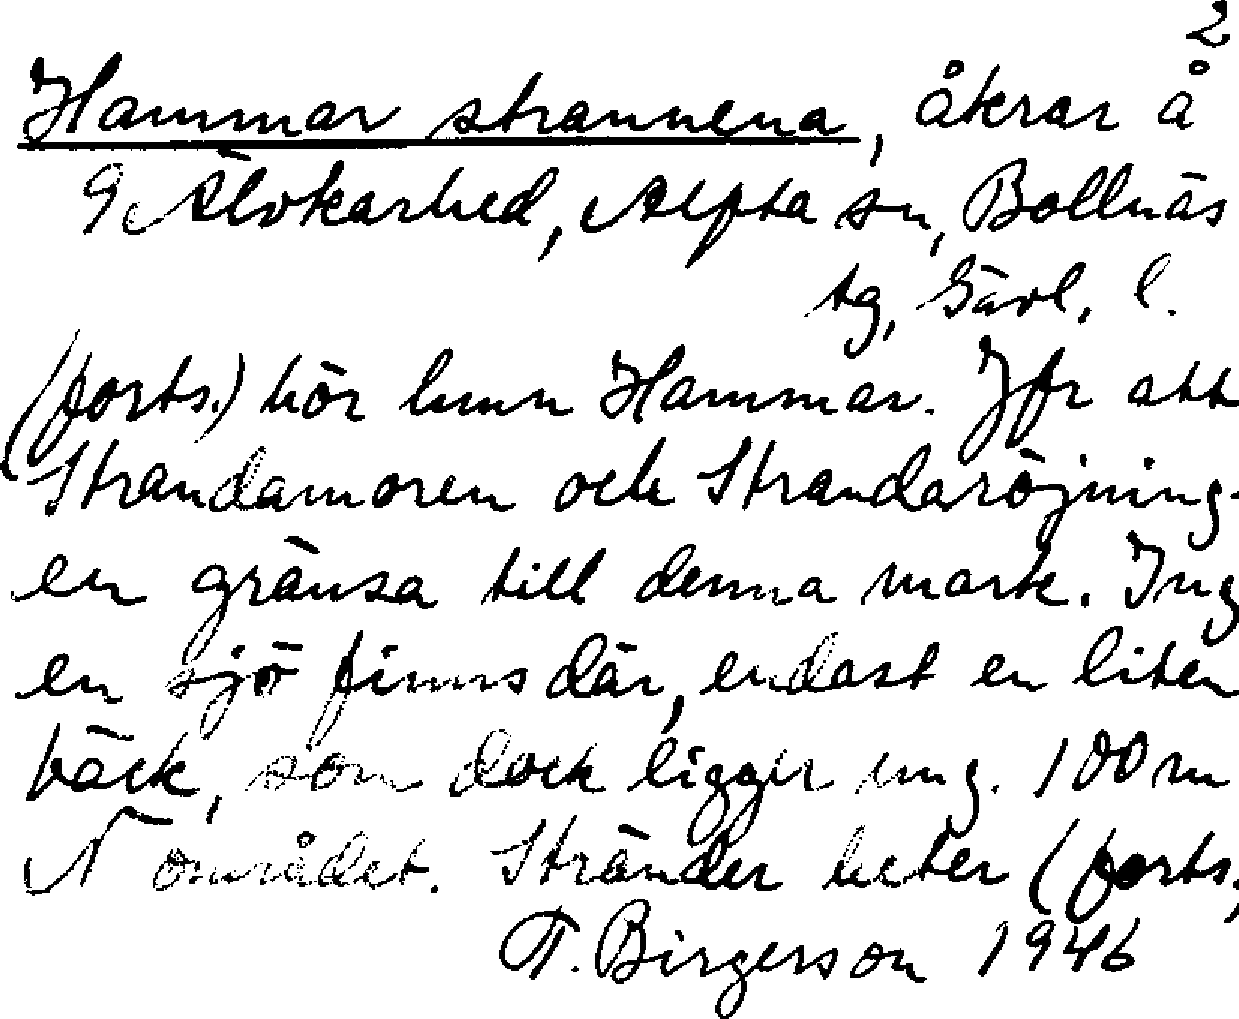 2
Hammar strannena, åkrar å
9 Älvkarhed, Alfta sn, Bollnäs
tg, Gävl. l.
(forts.) hör hmn Hammar. Jfr att
Strandamoren och Strandaröjning-
en gränsa till denna mark. Ing
en sjö finns där, endast en liten
bäck, som dock ligger ung. 100 m
N området. Stränder heter (forts.
T. Birgerson 1946